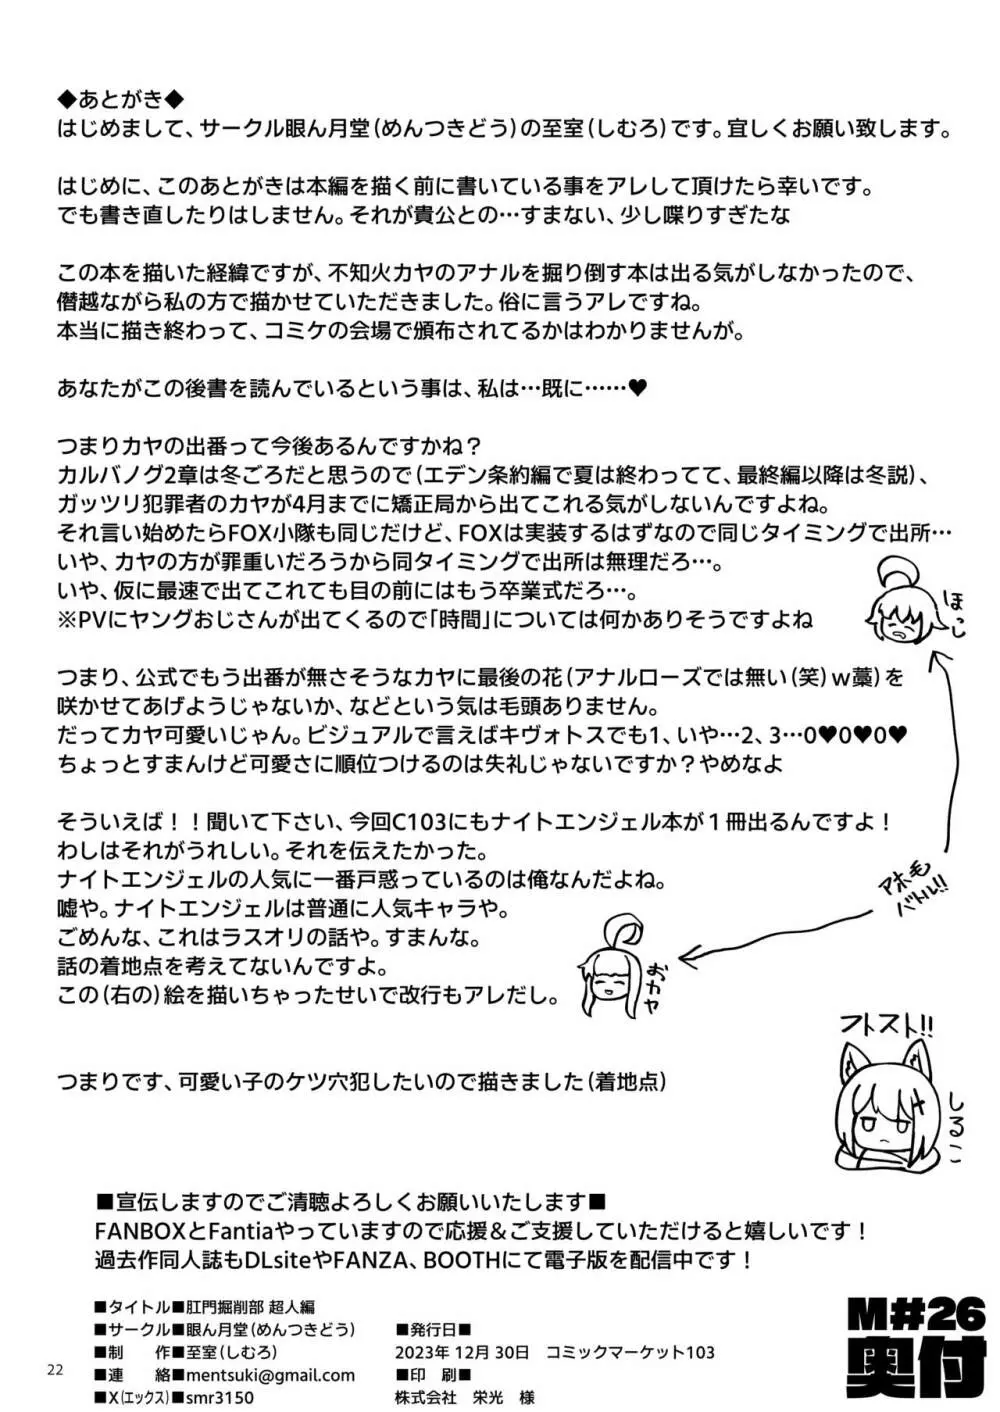 ◆あとがき◆
はじめまして、サークル眼ん月堂（めんつきどう）の至室（しむろ）です。宜しくお願い致します。
はじめに、このあとがきは本編を描く前に書いている事をアレして頂けたら幸いです。
でも書き直したりはしません。それが貴公との…すまない、少し喋りすぎたな
この本を描いた経緯ですが、不知火カヤのアナルを掘り倒す本は出る気がしなかったので、
僭越ながら私の方で描かせていただきました。俗に言うアレですね。
本当に描き終わって、コミケの会場で頒布されてるかはわかりませんが。
あなたがこの後書を読んでいるという事は、私は…既に……♥
つまりカヤの出番って今後あるんですかね？
カルバノグ2章は冬ごろだと思うので（エデン条約編で夏は終わってて、最終編以降は冬説）、
ガッツリ犯罪者のカヤが4月までに矯正局から出てこれる気がしないんですよね。
それ言い始めたらFOX小隊も同じだけど、FOXは実装するはずなので同じタイミングで出所…
いや、カヤの方が罪重いだろうから同タイミングで出所は無理だろ…。
いや、仮に最速で出てこれても目の前にはもう卒業式だろ…。
※PVにヤングおじさんが出てくるので「時間」については何かありそうですよね
ほっじ
つまり、公式でもう出番が無さそうなカヤに最後の花（アナルローズでは無い（笑）ｗ藁）を
咲かせてあげようじゃないか、などという気は毛頭ありません。
だってカヤ可愛いじゃん。ビジュアルで言えばキヴォトスでも1、いや…2、3…0♥0♥0♥
ちょっとすまんけど可愛さに順位つけるのは失礼じゃないですか？やめなよ
そういえば！！聞いて下さい、今回C103にもナイトエンジェル本が１冊出るんですよ！
わしはそれがうれしい。それを伝えたかった。
ナイトエンジェルの人気に一番戸惑っているのは俺なんだよね。
嘘や。ナイトエンジェルは普通に人気キャラや。
ごめんな、これはラスオリの話や。すまんな。
話の着地点を考えてないんですよ。
この（右の）絵を描いちゃったせいで改行もアレだし。
アホ毛
バトル!!
おカヤ
つまりです、可愛い子のケツ穴犯したいので描きました（着地点）
フトスト!!
しるこ
■宣伝しますのでご清聴よろしくお願いいたします■
FANBOXとFantiaやっていますので応援＆ご支援していただけると嬉しいです！
過去作同人誌もDLsiteやFANZA、BOOTHにて電子版を配信中です！
■タイトル■肛門掘削部 超人編
■サークル■眼ん月堂（めんつきどう）
■制　作■至室（しむろ）
■連　絡■mentsuki@gmail.com
■X（エックス）■smr3150
■発行日■
2023年 12月 30日　コミックマーケット103
■印　刷■
株式会社　栄光　様
M#26
奥付
22